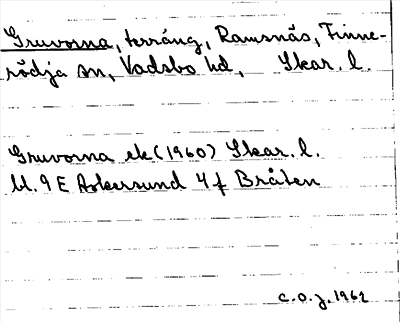 Gruvorna, terräng, Ramsnäs, Finne-
rödja sn, Vadsbo hd, Skar. l.
Gruvorna ek (1960) Skar. l.
bl. 9 E Askersund 4 f Bråten
C.O.J. 1962